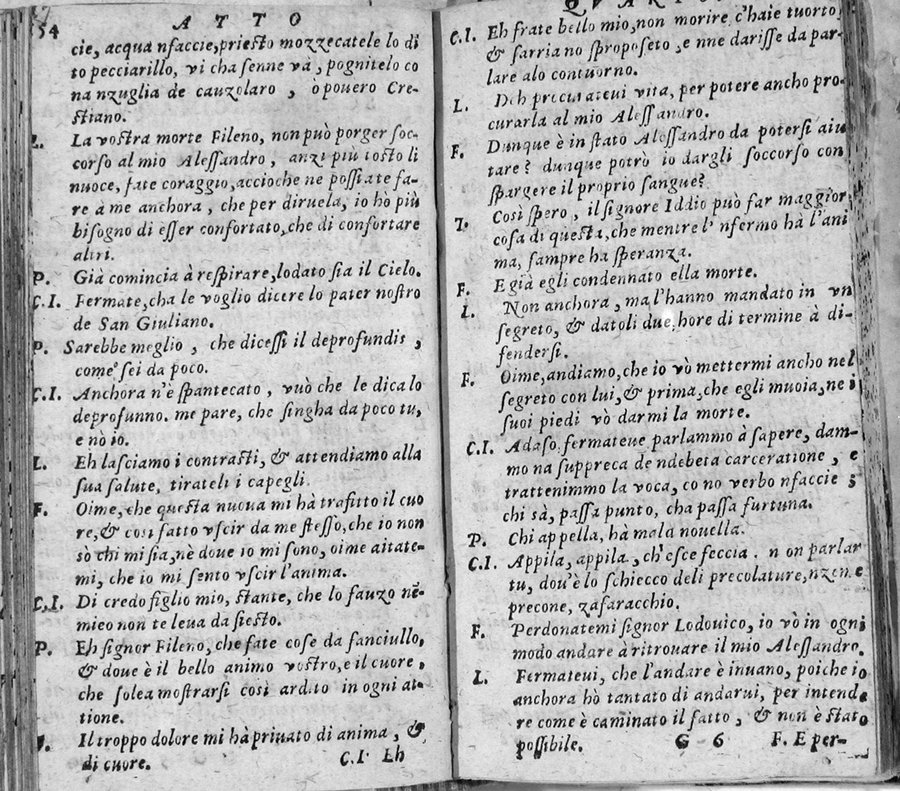 54 ATTO
cie, acqua nfaccie, priesto mozzecatele lo di
to pecciarillo, vi cha senne và, pognitelo co
na nzuglia de cauzolaro, ò pouero Cre-
stiano.
L. La vostra morte Fileno, non può porger soc-
corso al mio Alessandro, anzi più tosto li
nuoce, fate coraggio, accioche ne possiate fa-
re à me anchora, che per diruela, io hò più
bisogno di esser confortato, che di confortare
altri.
P. Già comincia à respirare, lodato sia il Cielo.
C.I. Fermate, cha le voglio dicere lo pater nostro
de San Giuliano.
P. Sarebbe meglio, che dicessi il deprofundis,
come sei da poco.
C.I. Anchora n'è spantecato, vuò che le dica lo
deprofunno. me pare, che singha da poco tu,
e nò io.
L. Eh lasciamo i contrasti, & attendiamo alla
sua salute, tirateli i capegli.
F. Oime, che questa nuoua mi hà trafitto il cuo
re, & così fatto vscir da me stesso, che io non
sò chi mi sia, nè doue io mi sono, oime aitate-
mi, che io mi sento vscir l'anima.
C.I. Di credo figlio mio, stante, che lo fauzo ne-
mieco non te leua da siesto.
P. Eh signor Fileno, che fate cose da fanciullo,
& doue è il bello animo vostro, e il cuore,
che solea mostrarsi così ardito in ogni at-
tione.
F. Il troppo dolore mi hà priuato di anima, &
di cuore. C.I Eh
QVARTO
C.I. Eh frate bello mio, non morire, c'haie tuorto,
& sarria no sproposeto, e nne darisse da par-
lare alo contuorno.
L. Deh procurateui vita, per potere ancho pro-
curarla al mio Alessandro.
F. Dunque è in stato Alessandro da potersi aiu
tare? dunque potrò io dargli soccorso con
spargere il proprio sangue?
L. Così spero, il signore Iddio può far maggior
cosa di questa, che mentre l'nfermo hà l'ani
ma, sampre ha speranza.
F. E già egli condennato ella morte.
L. Non anchora, ma l'hanno mandato in vn
segreto, & datoli due hore di termine à di-
fendersi.
F. Oime, andiamo, che io vò mettermi ancho nel
segreto con lui, & prima, che egli muoia, ne i
suoi piedi vò darmi la morte.
C.I. Adaso fermateue parlammo à sapere, dam-
mo na suppreca de ndebeta carceratione, e
trattenimmo la voca, co no verbo nfaccie
chi sà, passa punto, cha passa furtuna.
P. Chi appella, hà mala nouella.
C.I. Appila, appila, ch'esce feccia. non parlar
tu, dou'è lo schiecco deli precolature, nzeme
precone, zafaracchio.
F. Perdonatemi signor Lodouico, io vò in ogni
modo andare à ritrouare il mio Alessandro.
L. Fermateui, che l'andare è inuano, poiche io
anchora hò tantato di andarui, per intende
re come è caminato il fatto, & non è stato
possibile. G 6 F. E per-